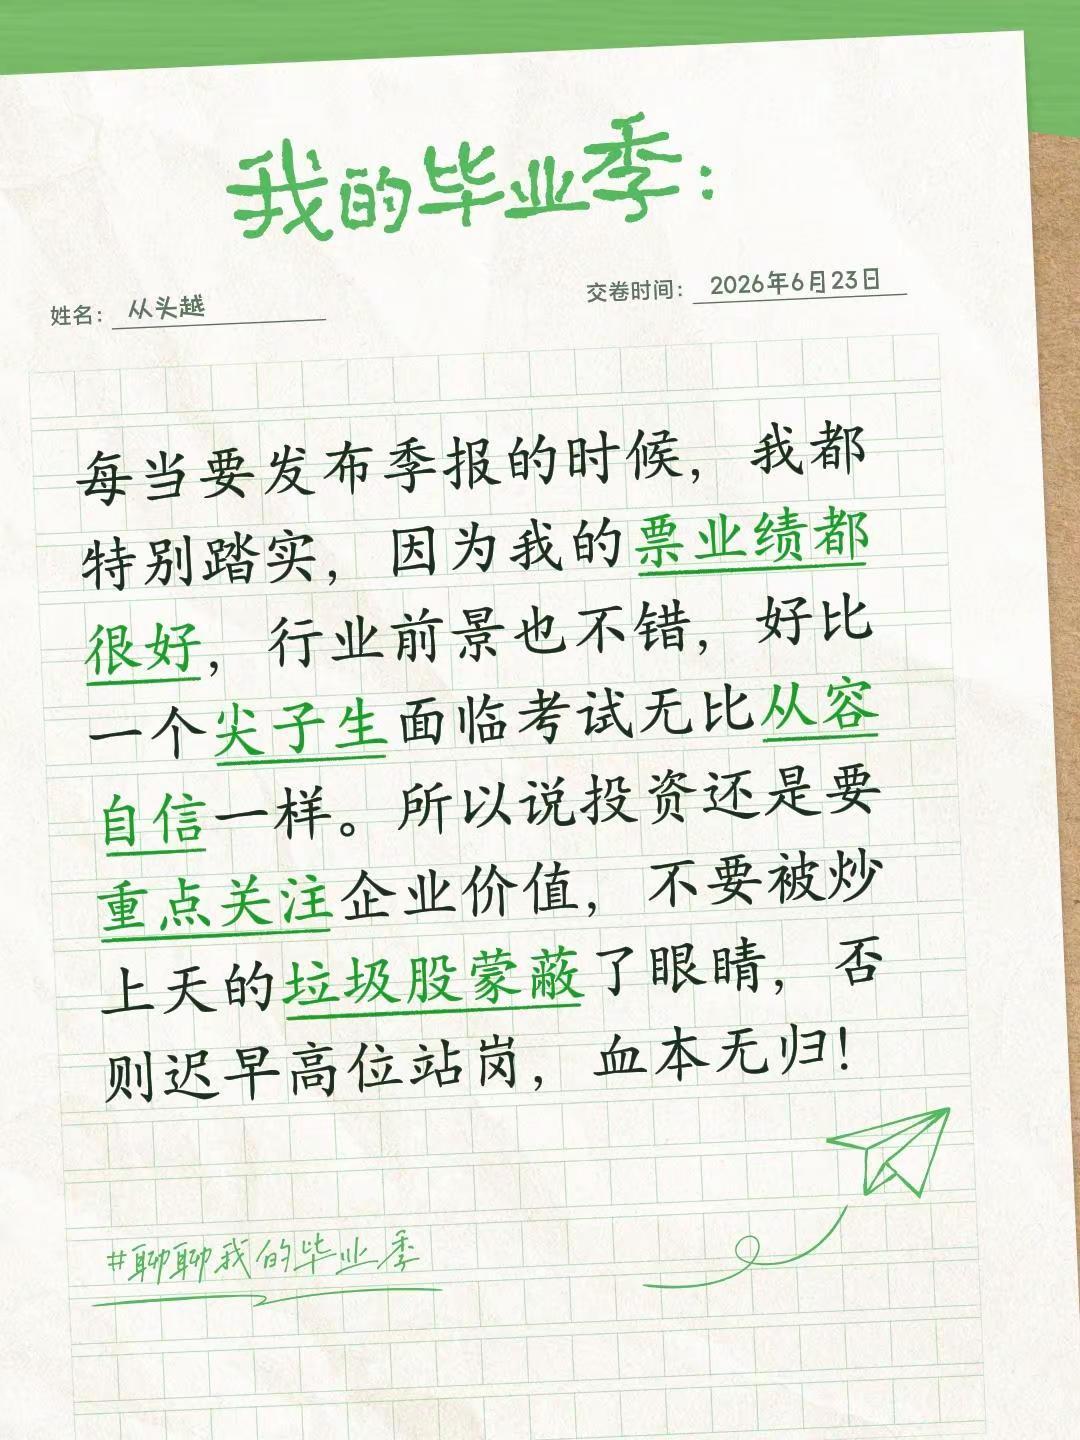 我的毕业季：
姓名： 从头越
交卷时间： 2026年6月23日
每当要发布季报的时候，我都
特别踏实，因为我的票业绩都
很好，行业前景也不错，好比
一个尖子生面临考试无比从容
自信一样。所以说投资还是要
重点关注企业价值，不要被炒
上天的垃圾股蒙蔽了眼睛，否
则迟早高位站岗，血本无归！
#聊聊我的毕业季